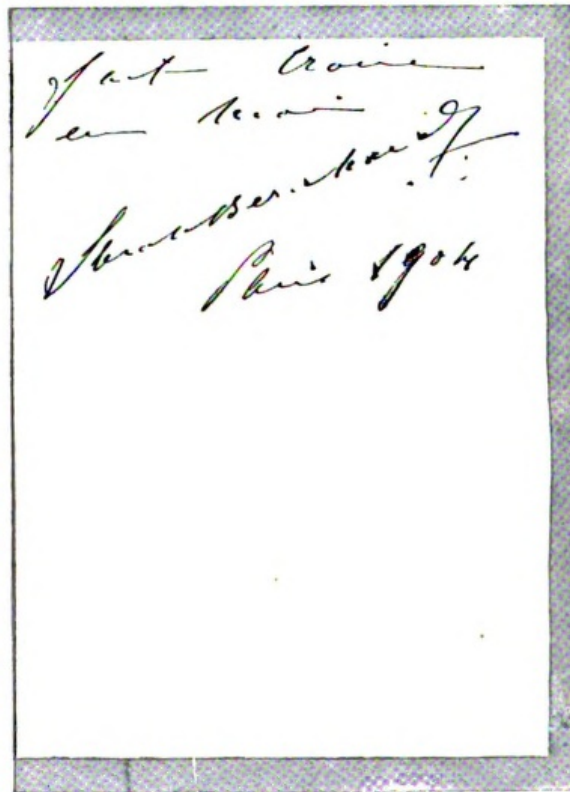 croire
en moi
Sarah Bernhardt
Paris 1904